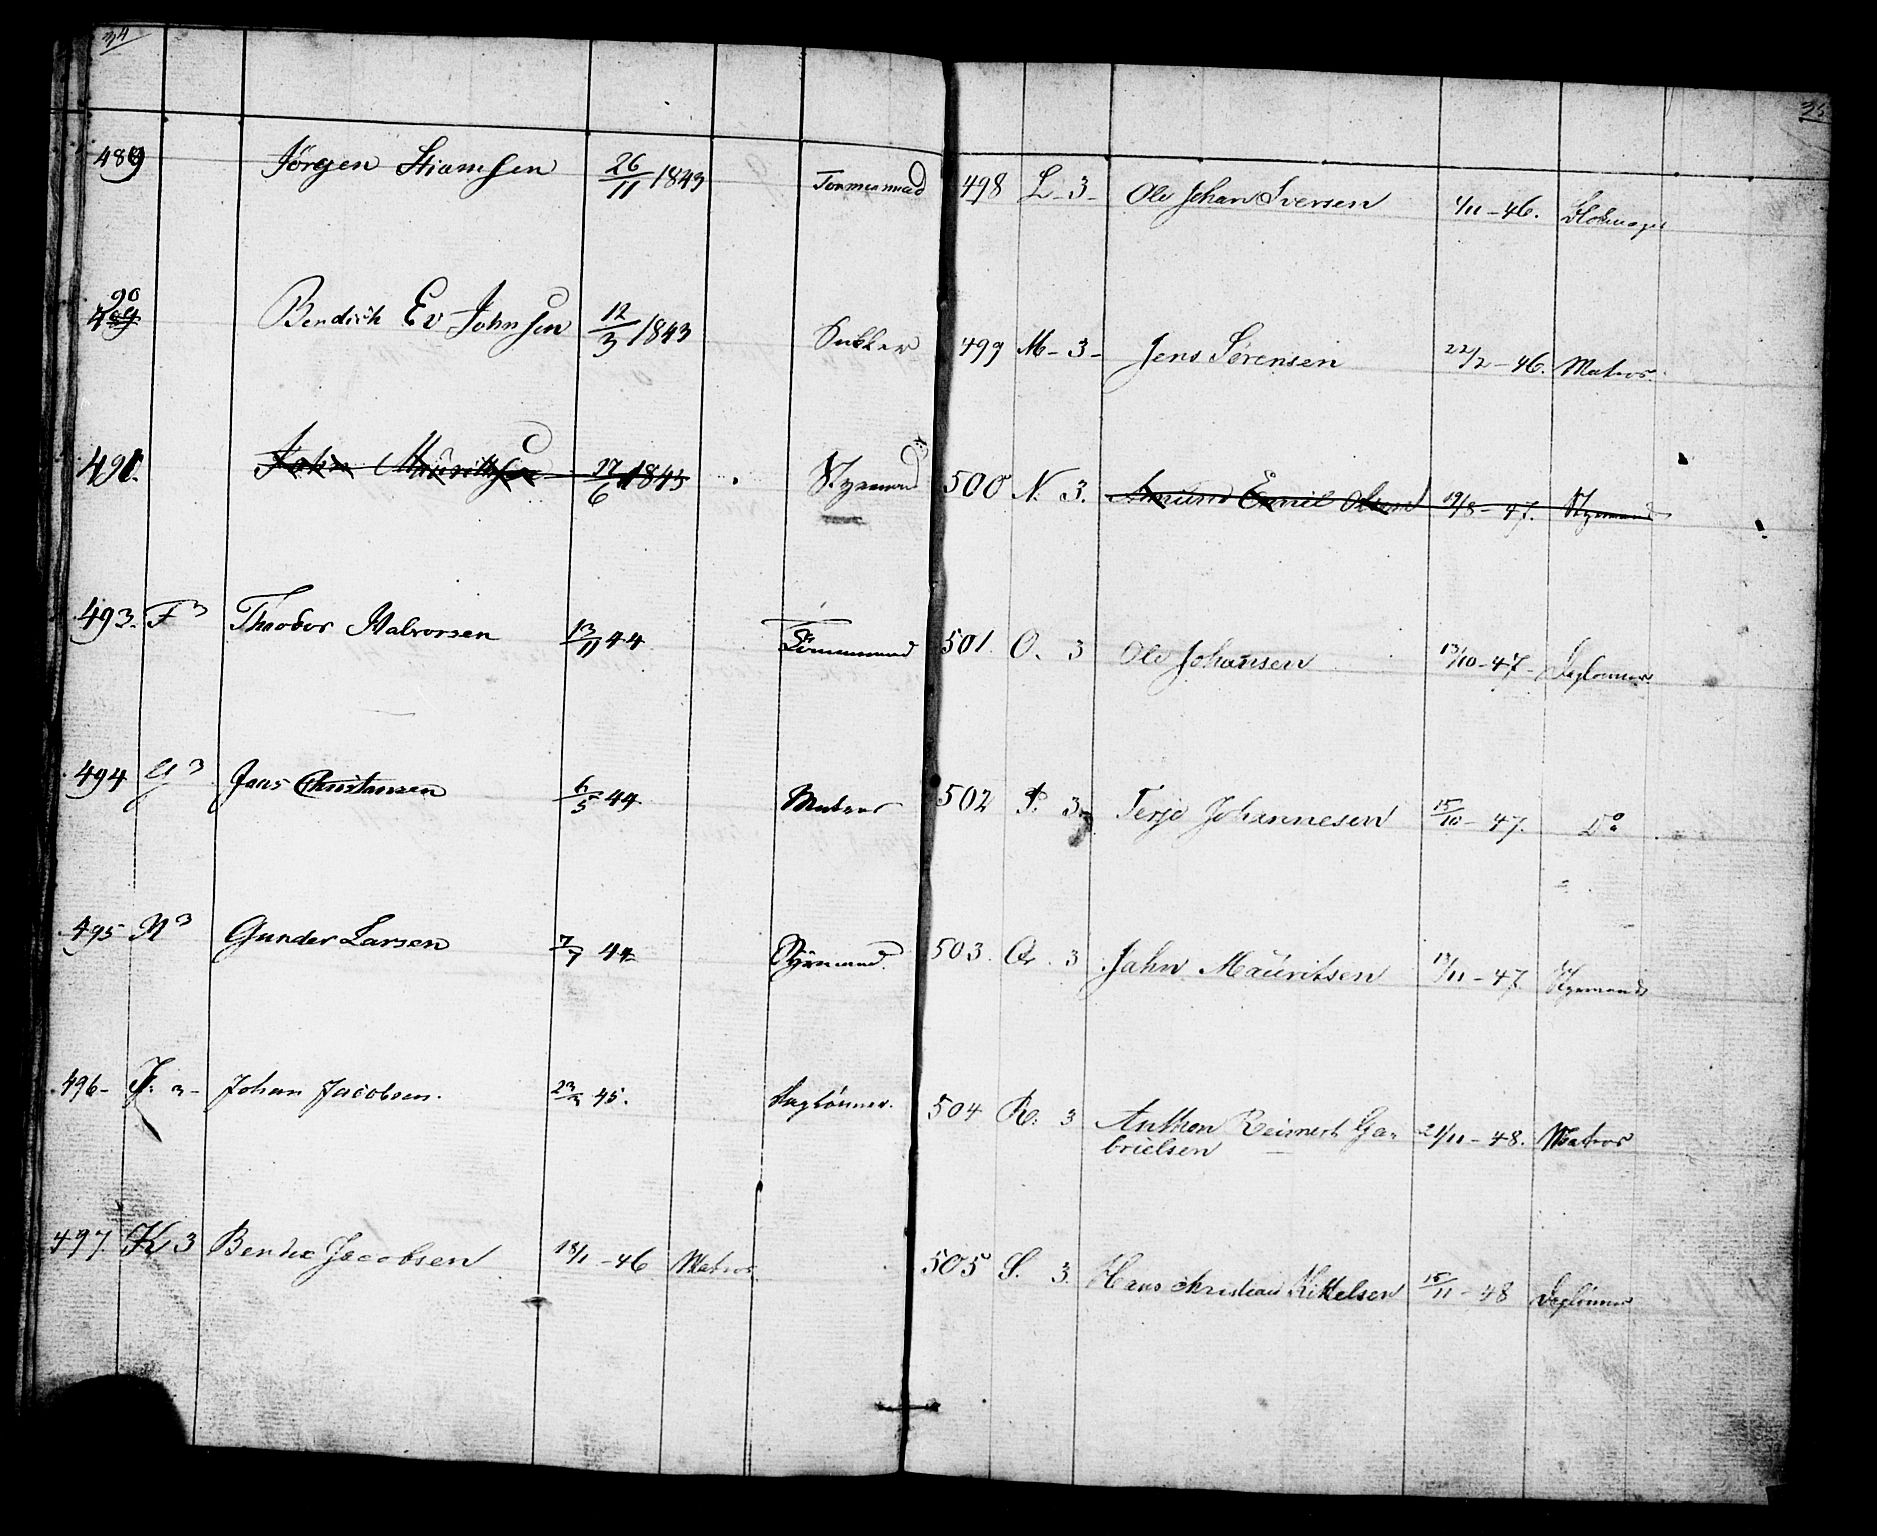 34
489 Jörgen Stiansen 26/11 1843 Tømmermad
90
Bendick Ev Johnsen 12/3 1843 Kukker
491. John Mauritzsen 27/6 1843 Styrmand
493. F 3 Theodor Halvorsen 13/11 44 Tömmermand
494 G 3 Jens Christiansen 6/5 44 Matros
495 H 3 Gunder Larsen 7/7 44 Styrmand.
496- J. 3- Johan Jacobsen. 23/3 45. Daglönner.
497. K 3 Bendix Jacobsen 18/1 - 46 Matros.
35
498 L - 3 - Ole Johan Iversen 1/11 - 46. Blokmager
499 M - 3 - Jens Sørensen 22/2 - 46. Matros.
500 N. 3. Amund Emil Olsen 19/8 - 47. Styrmand
501. O. 3 Ole Johansen 13/10 - 47 - Daglönner
502 P. 3. Terje Johannesen 15/10 - 47. Do
503. Q. 3 Jahn Mauritsen 13/11 - 47. Styrmand
504 R. 3 Anthon Reimert Ga-
brielsen 21/11 - 48. Matros
505 S. 3. Hans Christian Kittelsen 15/11 - 48 Daglönner